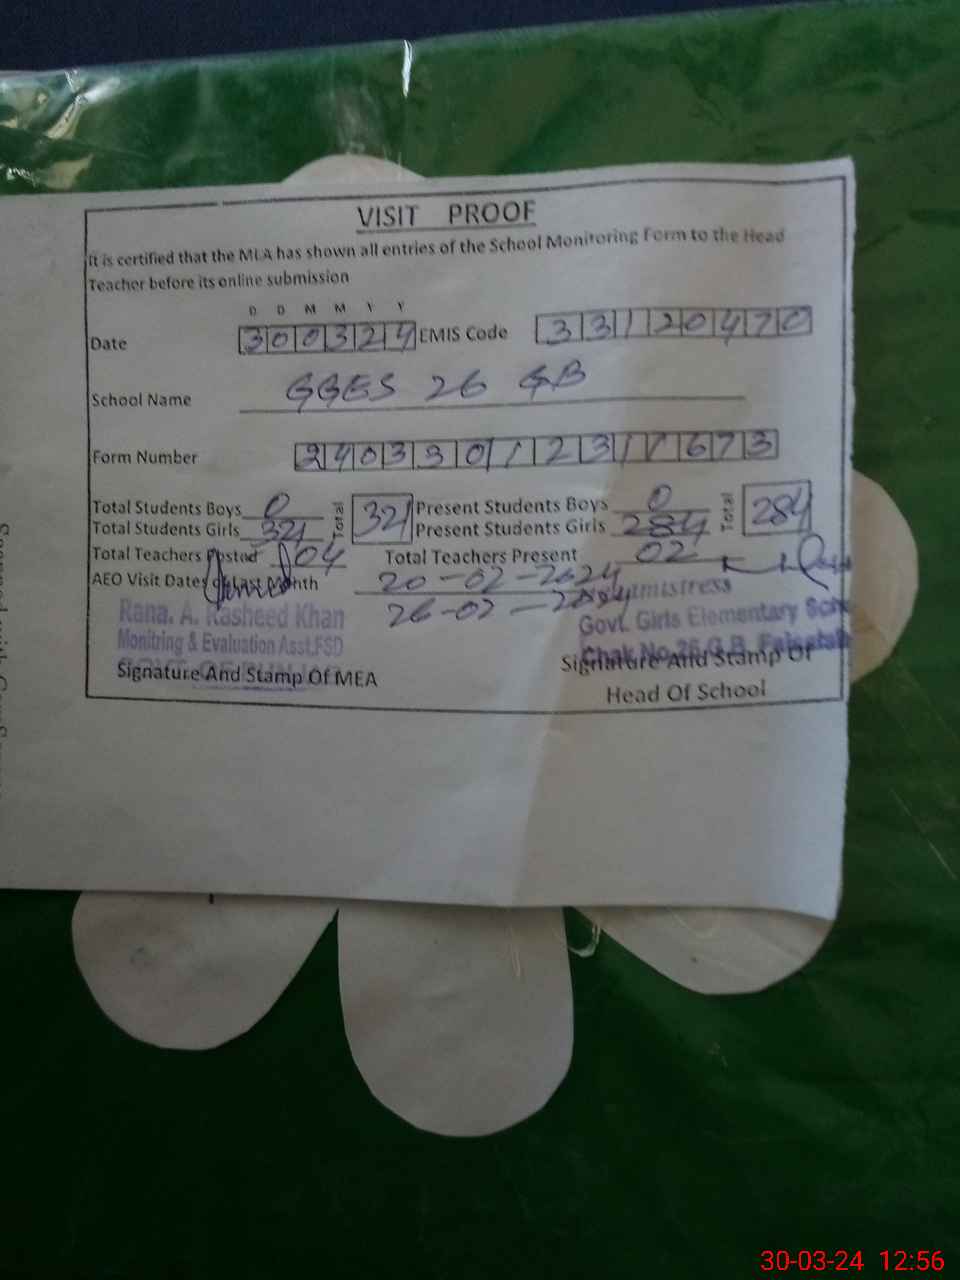 VISIT PROOF
It is certified that the MEA has shown all entries of the School Monitoring Form to the Head
Teacher before its online submission
D D M M Y Y
Date 300324 EMIS Code 33120470
School Name GGES 26 GB
Form Number 24033012311673
Total Students Boys 0 Total 321 Present Students Boys 0 Total 284
Total Students Girls 321 Present Students Girls 284
Total Teachers Posted 04 Total Teachers Present 02
AEO Visit Dates of Last Month 20-02-2024
26-02-2024
Rana. A. Rasheed Khan
Monitring & Evaluation Asst.FSD
Signature And Stamp Of MEA
Govt. Girls Elementary
Chak No.26 G.B.
Signature And Stamp Of
Head Of School
30-03-24 12:56